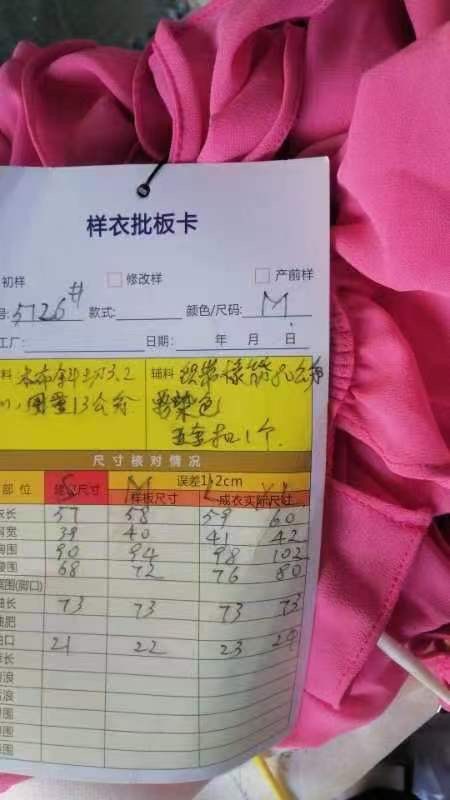 样衣批板卡
初样 修改样 产前样
号:5726# 款式: 颜色/尺码: M
工厂: 日期: 年 月 日
料 本布斜切3.2 辅料
用量13公分 染色
1个.
尺寸核对情况
部位 S M L 误差1-2cm XL
尺寸 样板尺寸 成衣实际尺寸
衣长 57 58 59 60
肩宽 39 40 41 42
胸围 90 94 98 102
腰围 68 72 76 80
围(脚口)
袖长 73 73 73 73
袖肥
袖口 21 22 23 24
长
浪
浪
围
围
围